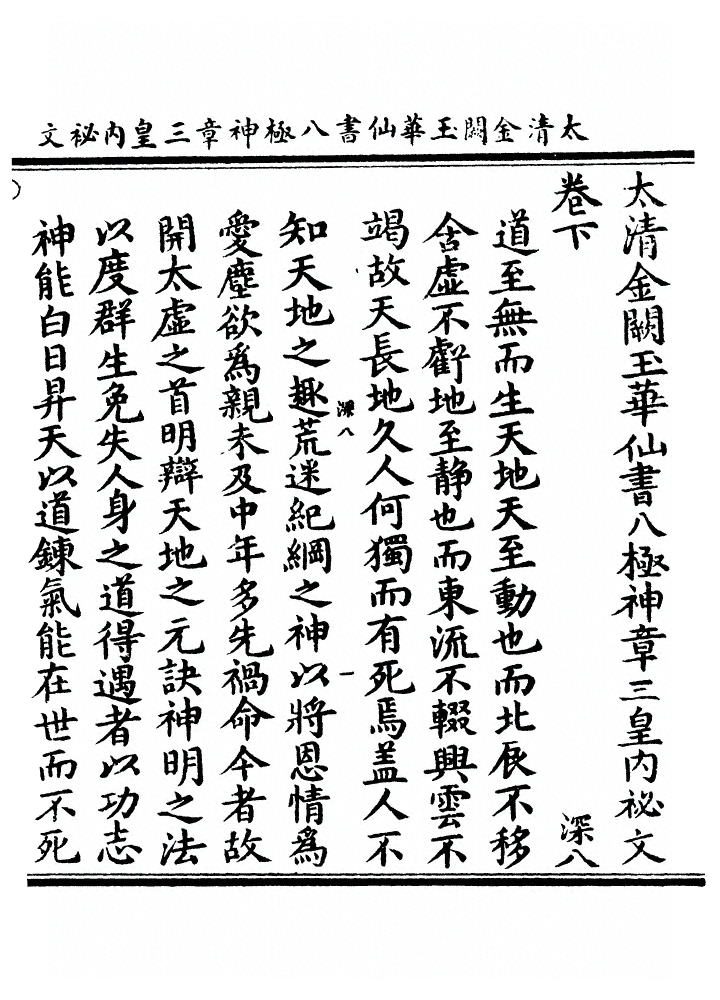 太清金闕玉華仙書八極神章三皇內祕文
太清金闕玉華仙書八極神章三皇內祕文
卷下
深八
道至無而生天地天至動也而北辰不移
含虛不虧地至静也而東流不輟興雲不
竭故天長地久人何獨而有死焉盖人不
深八
一
知天地之趣荒迷紀綱之神以將恩情為
愛塵欲為親未及中年多先禍命今者故
開太虛之首明辯天地之元訣神明之法
以度群生免失人身之道得遇者以功志
神能白日昇天以道鍊氣能在世而不死